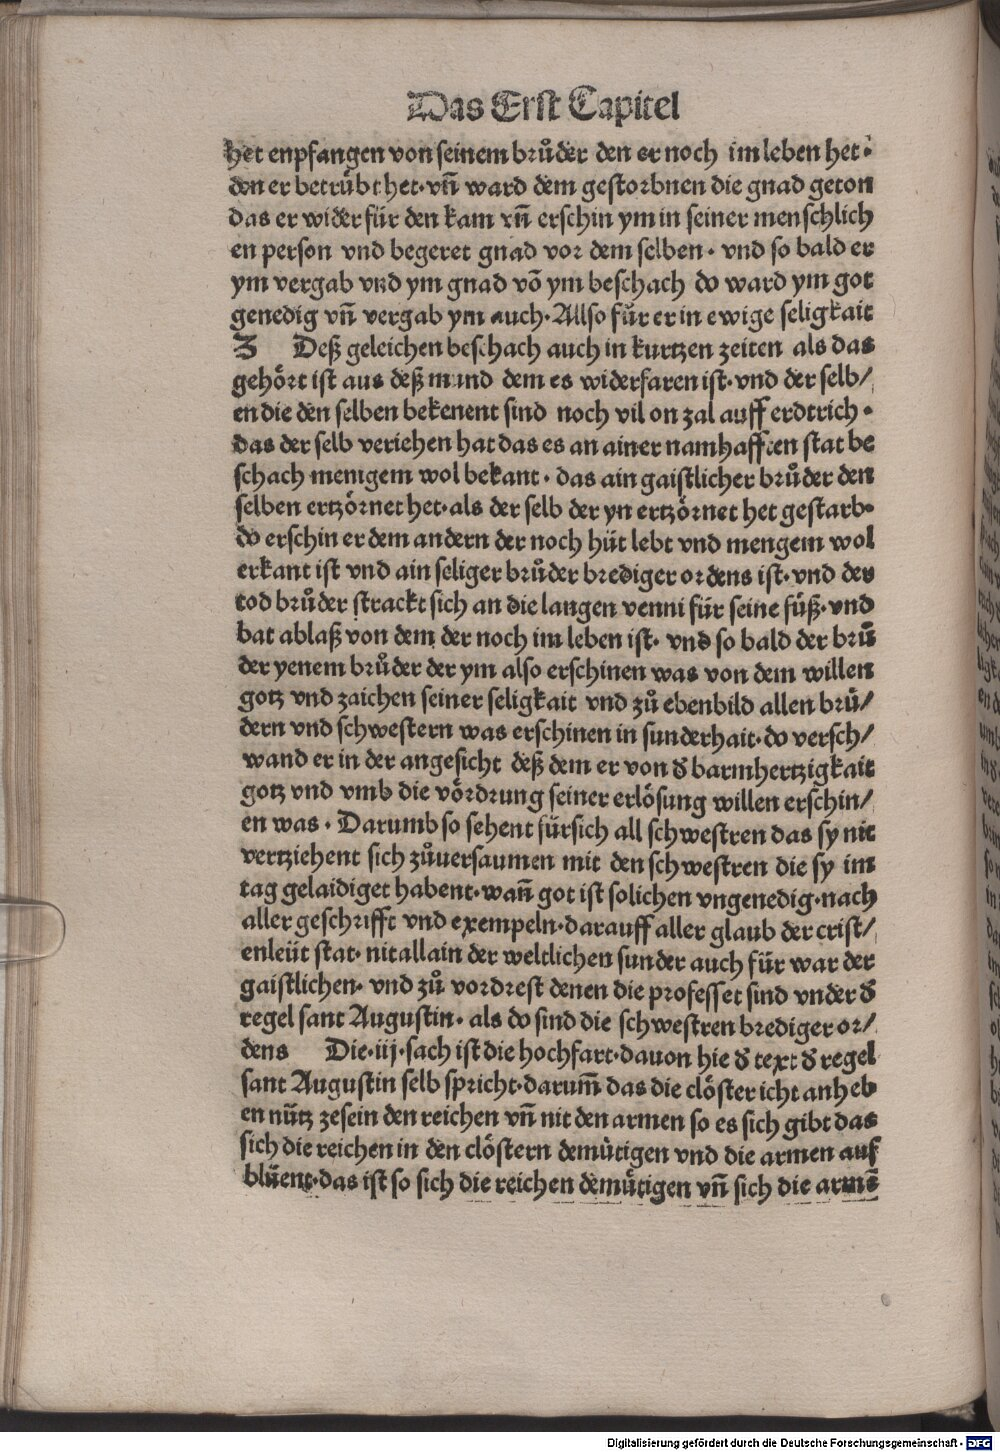 Das Erst Capitel
het enpfangen von seinem brůder den er noch im leben het·
den er betrübt het·vñ ward dem gestorbnen die gnad geton
das er wider für den kam vñ erschin ym in seiner menschlich
en person vnd begeret gnad vor dem selben· vnd so bald er
ym vergab vnd ym gnad võ ym beschach do ward ym got
genedig vñ vergab ym auch·Allso für er in ewige seligkait
3 Deß geleichen beschach auch in kurtzen zeiten als das
gehört ist aus deß mund dem es widerfaren ist·vnd der selb/
en die den selben bekenent sind noch vil on zal auff erdtrich·
das der selb veriehen hat das es an ainer namhafften stat be
schach menigem wol bekant· das ain gaistlicher brůder den
selben ertzörnet het·als der selb der yn ertzörnet het gestarb·
do erschin er dem andern der noch hüt lebt vnd mengem wol
erkant ist vnd ain seliger brůder brediger ordens ist·vnd der
tod brůder strackt sich an die langen venni für seine füß·vnd
bat ablaß von dem der noch im leben ist· vnd so bald der brů
der yenem brůder der ym also erschinen was von dem willen
gotz vnd zaichen seiner seligkait vnd zů ebenbild allen brü/
dern vnd schwestern was erschinen in sunderhait·do versch/
wand er in der angesicht deß dem er von ð barmhertzigkait
gotz vnd vmb die vördrung seiner erlösung willen erschin/
en was· Darumb so sehent fürsich all schwestren das sy nit
vertziehent sich zůuersaumen mit den schwestren die sy im
tag gelaidiget habent·wañ got ist solichen vngenedig·nach
aller geschrifft vnd exempeln·darauff aller glaub der crist/
enleüt stat· nit allain der weltlichen sunder auch für war der
gaistlichen· vnd zů vordrest denen die professet sind vnder ð
regel sant Augustin· als do sind die schwestren brediger or/
dens Die·iij·sach ist die hochfart·dauon hie ð text ð regel
sant Augustin selb spricht·darum̃ das die clöster icht anheb
en nütz zesein den reichen vñ nit den armen so es sich gibt das
sich die reichen in den clöstern demütigen vnd die armen auf
blüent·das ist so sich die reichen demütigen vñ sich die armẽ
Digitalisierung gefördert durch die Deutsche Forschungsgemeinschaft - DFG